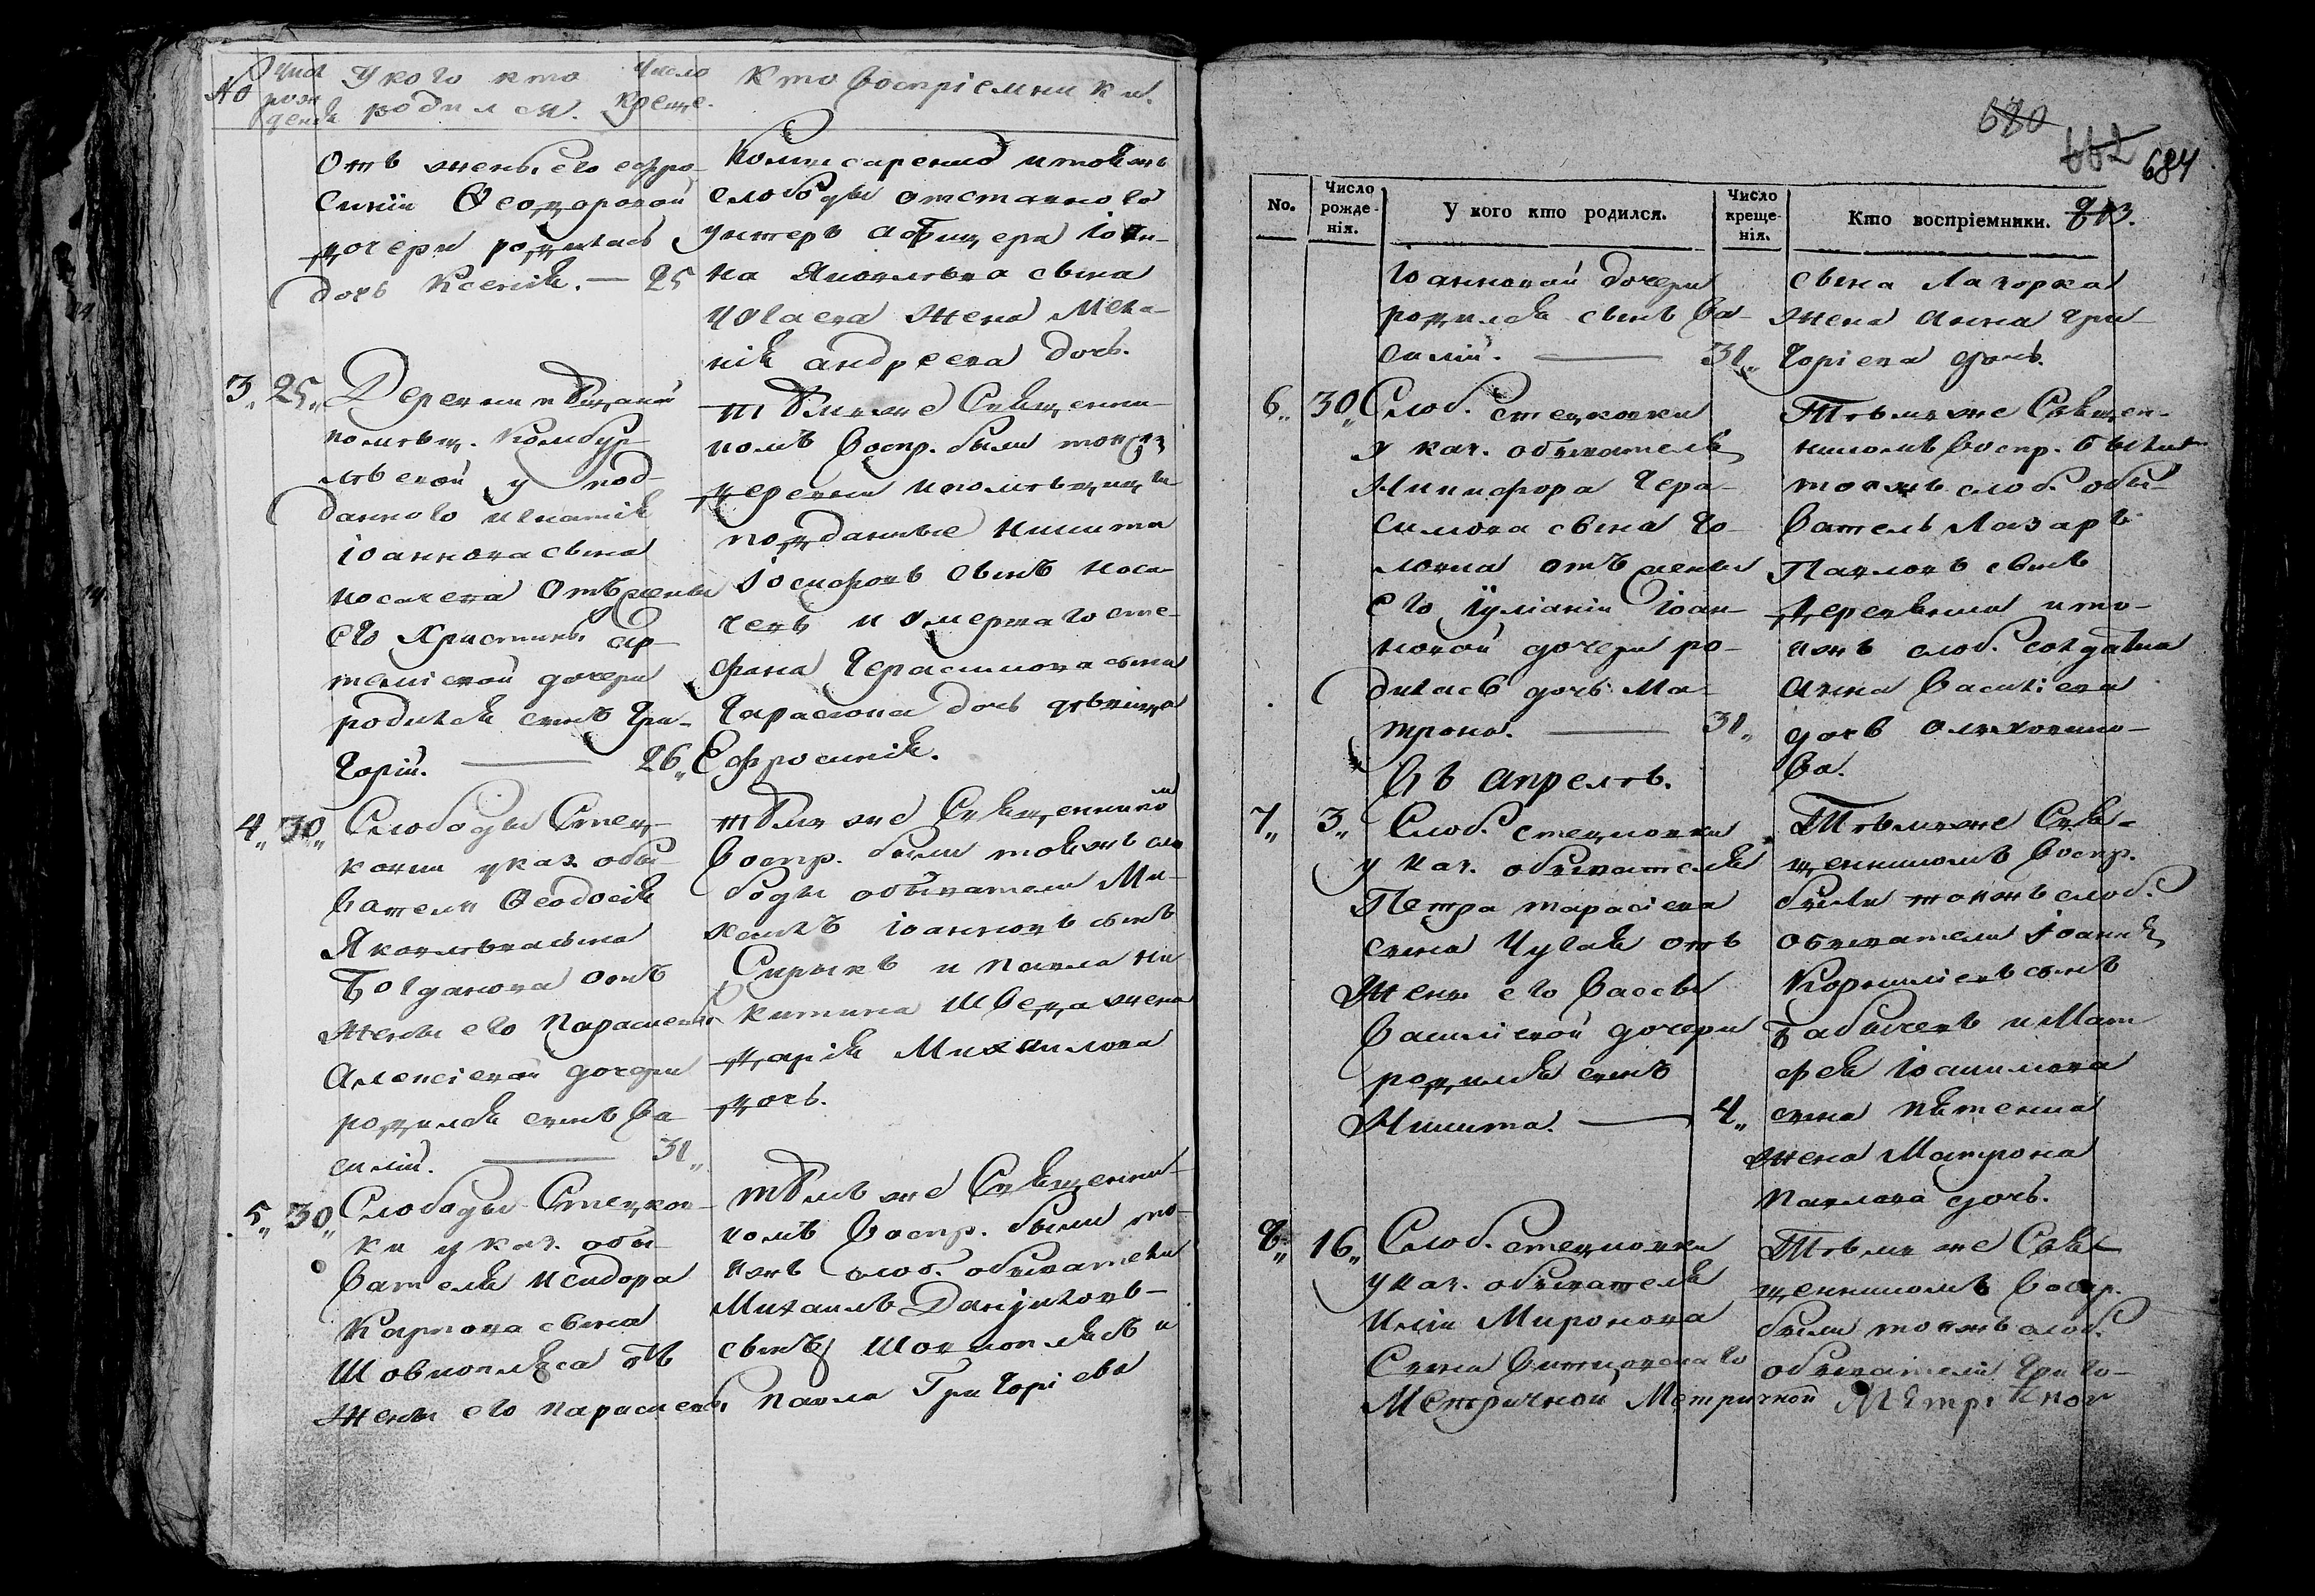 No
Число рожденія
У кого кто родился.
Число креще.
Кто воспріемники.
отъ жены его Ефро-
синіи Ѳеодоровой
дочери родилась
дочь Ксенія. — 25
и тояжъ
слободы отставного
унтеръ афицера Іоан-
на Яковлева сына
Чугаева жена Мела-
нія Андреева дочь.
3„ 25„
Деревни
помѣщ. Комбур-
лѣевой у под-
данного Игнатія
Іоаннова сына
Носачева отъ жены
его Христины Ар-
теміевой дочери
родился сынъ Гри-
горій. — 26„
тѣмъ же Священни-
комъ воспр. были тойжъ
деревни и помѣщицы
подданные Никита
Іосифовъ сынъ Носа-
чевъ и умершаго Сте-
фана Герасимова сына
Тарасова дочь дѣвица
Ефросинія.
4„ 30„
Слободы Стец-
ковки указ. обы-
вателя Ѳеодосія
Яковлева сына
Богданова отъ
жены его Параскевы
Алексіевой дочери
родился сынъ Ва-
силій. — 31„
тѣмъ же Священникомъ
воспр. были тояжъ сло
боды обыватели Ми-
хаилъ Іоанновъ сынъ
Скрыкъ и Павла Ни
китина Шведа жена
Дарія Михаилова
дочь.
5„ 30„
Слободы Стецков-
ки указ. обы-
вателя Исидора
Карпова сына
Шовкопляса отъ
жены его Параскевы
тѣмъ же Священни-
комъ воспр. были то-
яжъ слоб. обыватели
Михаилъ Даніиловъ-
сынъ Шовкоплясъ и
Павла Григоріева
680
662
684
813.
No.
Число рожде-нія.
У кого кто родился.
Число креще-нія.
Кто воспріемники.
Іоанновой дочери
родился сынъ Ва-
силій. — 31„
сына Лагорка
жена Анна Гри-
горіева дочь.
6„ 30„
Слоб. Стецковки
указ. обывателя
Никифора Гера-
симова сына Го-
ловна отъ жены
его Іуліаніи Іоан-
новой дочери ро-
дилась дочь Ма-
трона. — 31„
Тѣмъ же Священ-
никомъ воспр. были
тояжъ слоб. обы-
ватель Лазарь
Павловъ сынъ
и то-
яжъ слоб. солдатка
Анна Василіева
дочь
ва.
Въ Апрелѣ.
7„ 3„
Слоб. Стецковки
указ. обывателя
Петра Тарасіева
сына Чугая отъ
жены его Вассы
Василіевой дочери
родился сынъ
Никита. — 4„
Тѣмъ же Свя-
щенникомъ воспр.
были тояжъ слоб.
обыватели Іоаннъ
Корниліевъ сынъ
Бабичевъ и Мат
фея Іоакимова
сына Пятенка
жена Матрона
Павлова дочь.
8„ 16„
Слоб. Стецковки
указ. обывателя
Иліи Миронова
сына
Тѣмъ же Свя-
щенникомъ воспр.
были тояжъ слоб.
обыватели Григо-
Метричной Метричной Метричной